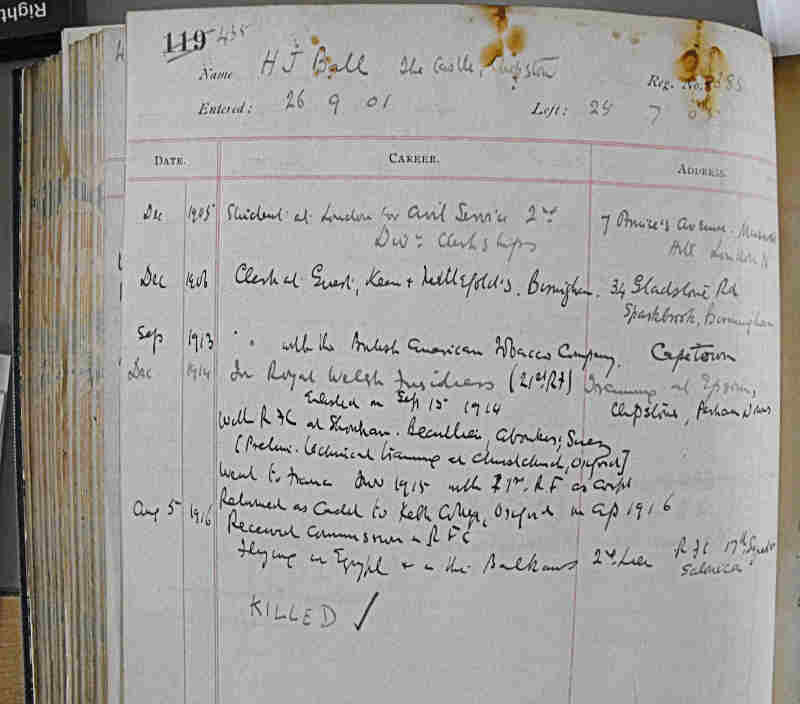 Right
119 435
Name H J Ball The Castle, Chepstow Reg. No. 385
Entered: 26 9 01 Left: 24 7
DATE. CAREER. ADDRESS.
Dec 1905 Student at London for Civil Service 2nd 7 Prince's Avenue. Muswell
Divn Clerkships Hill London N
Dec 1906 Clerk at Guest, Keen & Nettlefold's. Birmingham. 34 Gladstone Rd
Sparkbrook, Birmingham
Sep 1913 " " with the British American Tobacco Company. Capetown
Dec 1914 In Royal Welsh Fusiliers (21st RF) Training at Epsom,
Enlisted on Sep 15 1914 Clipstone, Perham Downs
With R F C at Shoreham. Beaulieu, Aboukir, Suez
(Prelim. technical training at Christchurch, Oxford)
Went to France Nov 1915 with R. F as Corpl
Aug 5 1916 Returned as Cadet to Keble College, Oxford in 1916
Received Commission in R F C
Flying in Egypt & in the Balkans 2nd Lieu R F C 17th Squadron
Salonica
KILLED ✓